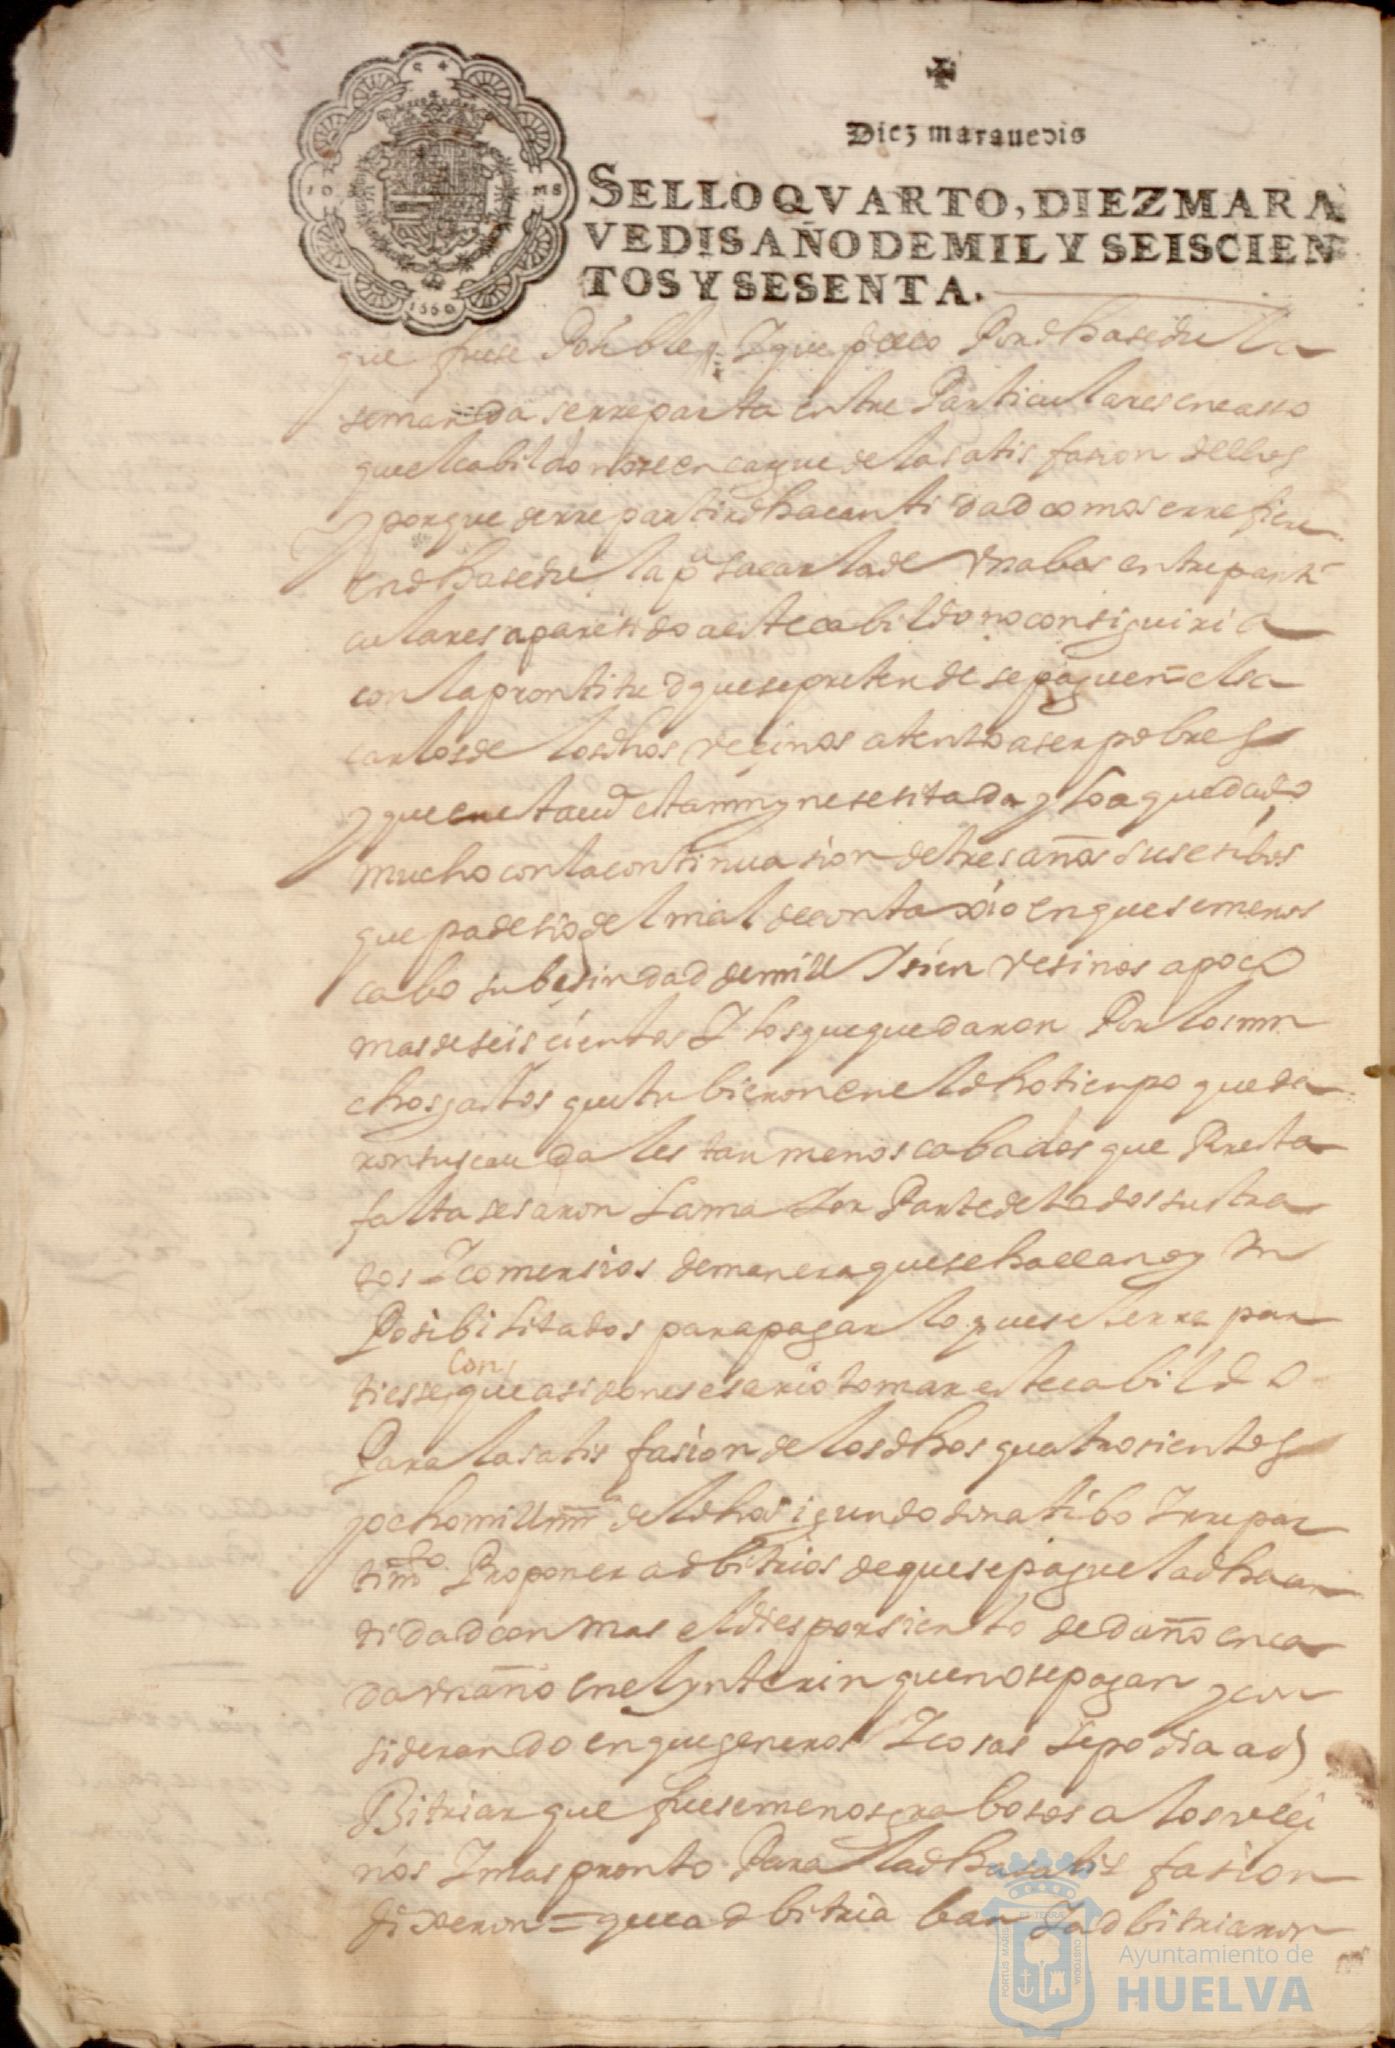 ✠
Diez marauedis
SELLO QVARTO, DIEZ MARA
VEDIS AÑO DE MIL Y SEISCIEN
TOS Y SESENTA.
que fuese Posible Y que Por dha sedu la
semanda se rreparta entre Particulares en casso
que el cabildo no se en cargue de la satis fasion dellos
y porque de rre partir dha canti dad como se rre fiere
en dha sedu la pa sacarla de unabes entre parti
culares a paresido a este cabildo no consiguiria
con la prontitud que se pretende se paguen = el sa
carlos de los dhos veçinos atento a ser pobres
y que en esta ciud esta muy nesesitada y lo a quedado
mucho con la continua sion de tres años susesibos
que padesio del mal de contaxio en que se menos
cabo su besindad de mill Y sien vesinos a poco
mas de seis cientos Y los que quedaron Por los mu
chos gastos que tu bieron en el dho tienpo queda
ron sus cau da les tan menos cabados que Por esta
falta sesaron La ma Yor Parte de todos sus tra
tos Y comersios de manera que se hallan oy Yn
Posibilitados para pagar lo que se les rre par
tiesse con que a sido nesesario tomar este cabildo
Para la satis fasion de los dhos quatrosientos
y ocho mill mrs del dho sigundo donatibo Y rrepar
timto Proponer adbitrios de que se pague la dha can
tidad con mas el dies por siento de daño en ca
da un año en el ynterin que no se pagan y con
siderando en que generos Y cosas se podia ad
Bitriar que fuese menos grabosos a los veçi
nos Y mas pronto Para la dha satis fasion
di xeron = que ad bitria ban Y adbitriaron
10
MS
1660
PORTUS MARIS ET TERRAE CUSTODIA
Ayuntamiento de
HUELVA